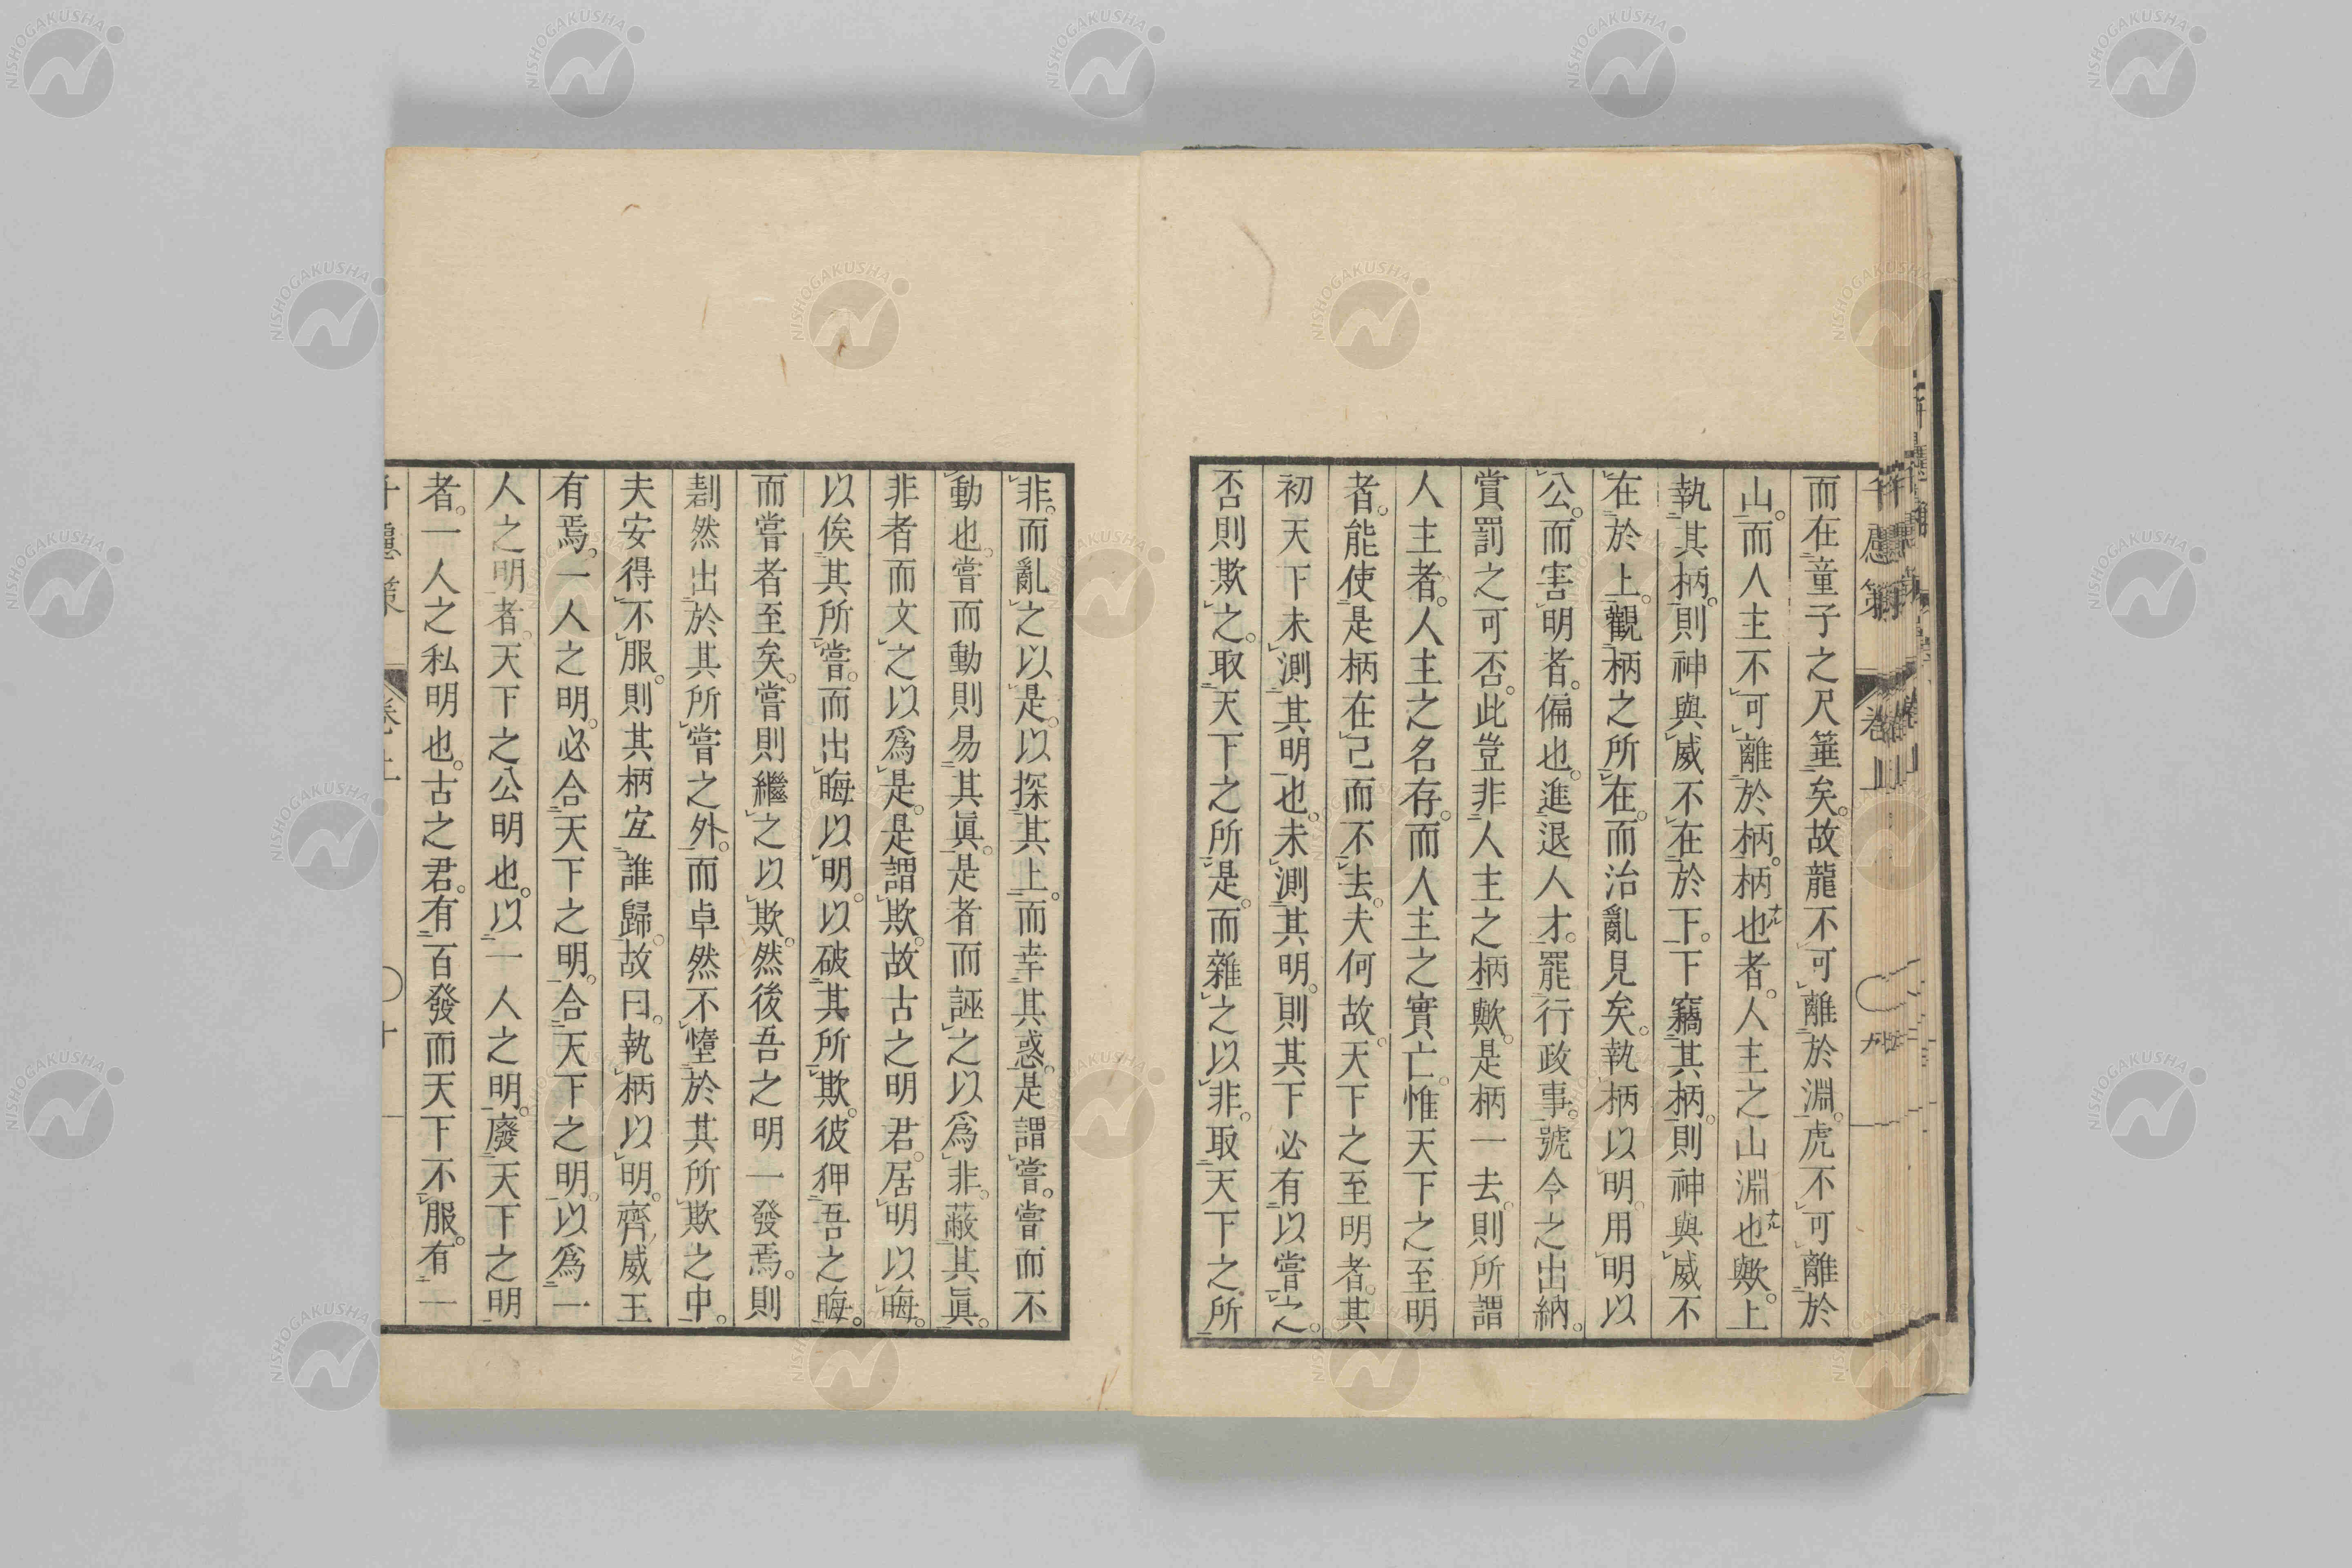 而在童子之尺箠矣。故龍不可離於淵。虎不可離於
山。而人主不可離於柄。柄也者。人主之山淵也歟。上
執其柄。則神與威不在於下。下竊其柄。則神與威不
在於上。觀柄之所在。而治亂見矣。執柄以明。用明以
公。而害明者。偏也。進退人才。罷行政事。號令之出納。
賞罰之可否。此豈非人主之柄歟。是柄一去。則所謂
人主者。人主之名存。而人主之實亡。惟天下之至明
者。能使是柄在己而不去。夫何故。天下之至明者。其
初天下未測其明也。未測其明。則其下必有以嘗之。
否則欺之。取天下之所是。而雜之以非。取天下之所
非。而亂之以是。以探其上。而幸其惑。是謂嘗。嘗而不
動也。嘗而動則易其眞。是者而誣之以爲非。蔽其眞。
非者而文之以爲是。是謂欺。故古之明君。居明以晦。
以俟其所嘗。而出晦以明。以破其所欺。彼狎吾之晦。
而嘗者至矣。嘗則繼之以欺。然後吾之明一發焉。則
剨然出於其所嘗之外。而卓然不墮於其所欺之中。
夫安得不服。則其柄宜誰歸。故曰。執柄以明。齊威王
有焉。一人之明。必合天下之明。合天下之明。以爲一
人之明者。天下之公明也。以一人之明。廢天下之明
者。一人之私明也。古之君。有百發而天下不服。有一
千慮策 卷上 九
NISHOGAKUSHA